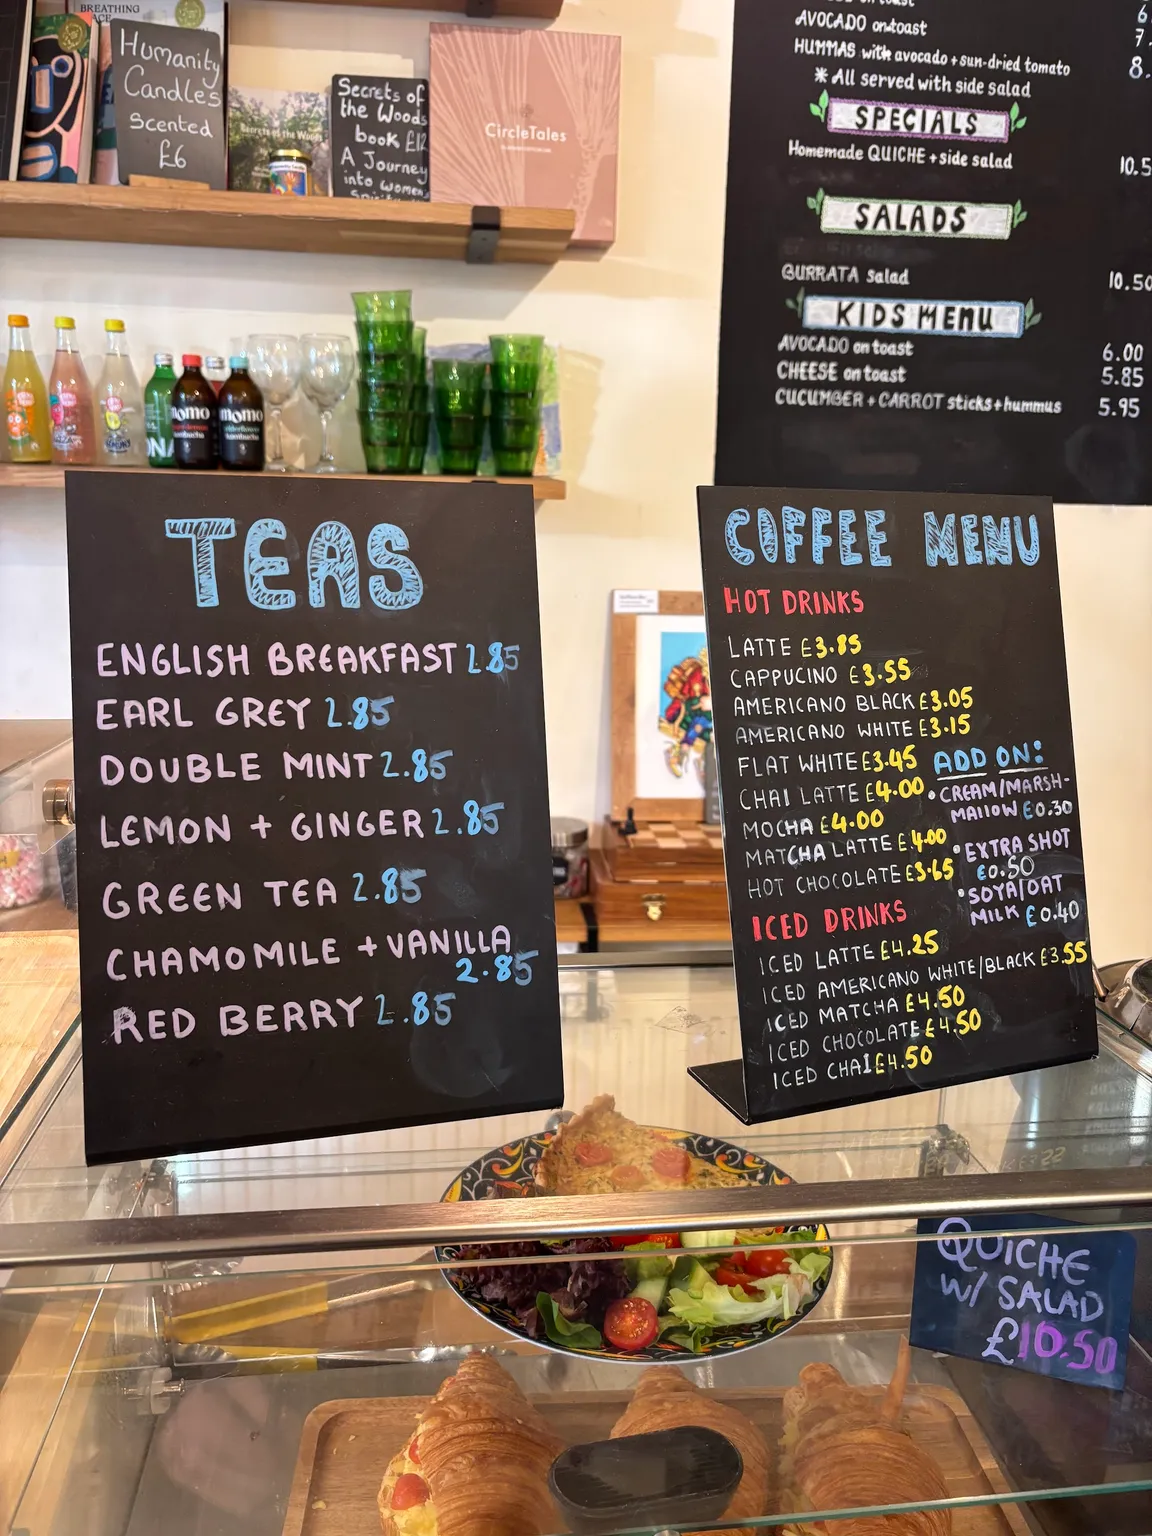 BREATHING
Humanity
Candles
Scented
£6
Secrets of the Woods
Secrets of
the Woods
book £12
A Journey
into women
CircleTales
AVOCADO on toast
HUMMAS with avocado + sun-dried tomato
* All served with side salad
6
7.
8.
SPECIALS
Homemade QUICHE + side salad 10.5
SALADS
BURRATA salad 10.50
KIDS MENU
AVOCADO on toast 6.00
CHEESE on toast 5.85
CUCUMBER + CARROT sticks + hummus 5.95
momo
kombucha
momo
kombucha
TEAS
ENGLISH BREAKFAST 2.85
EARL GREY 2.85
DOUBLE MINT 2.85
LEMON + GINGER 2.85
GREEN TEA 2.85
CHAMOMILE + VANILLA
2.85
RED BERRY 2.85
COFFEE MENU
HOT DRINKS
LATTE £3.85
CAPPUCINO £3.55
AMERICANO BLACK £3.05
AMERICANO WHITE £3.15
FLAT WHITE £3.45
CHAI LATTE £4.00
MOCHA £4.00
MATCHA LATTE £4.00
HOT CHOCOLATE £3.65
ADD ON:
• CREAM/MARSH-
MALLOW £0.30
• EXTRA SHOT
£0.50
• SOYA/OAT
MILK £0.40
ICED DRINKS
ICED LATTE £4.25
ICED AMERICANO WHITE/BLACK £3.55
ICED MATCHA £4.50
ICED CHOCOLATE £4.50
ICED CHAI £4.50
QUICHE
W/ SALAD
£10.50